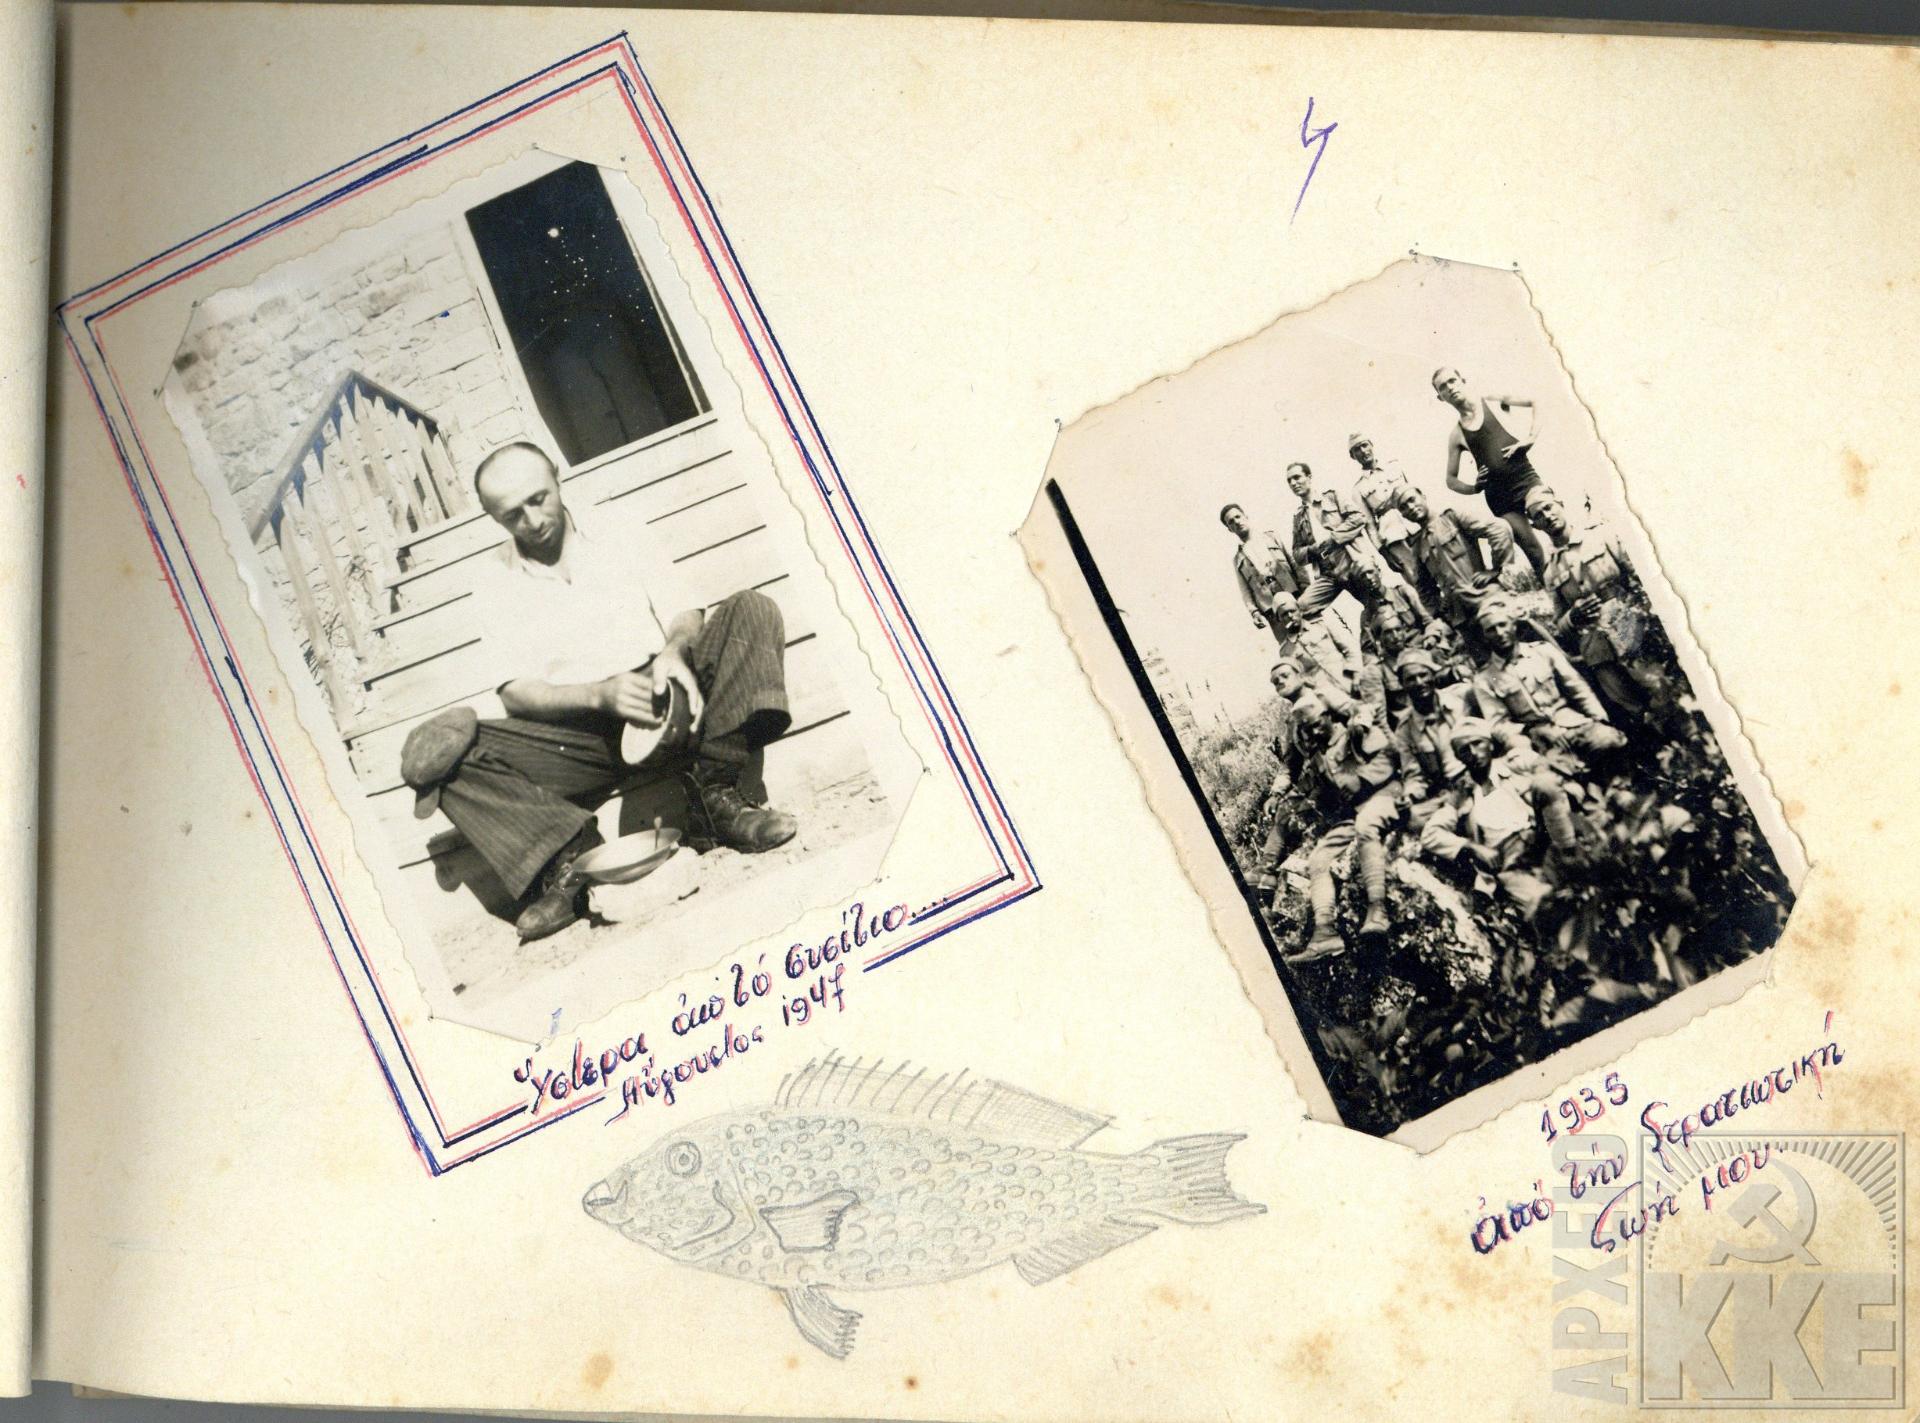 4
ὕστερα ἀπό τό συσίτιο....
Αὔγουστος 1947
1935
ἀπό τήν Στρατιωτική
ζωή μου.
ΑΡΧΕΙΟ
ΚΚΕ